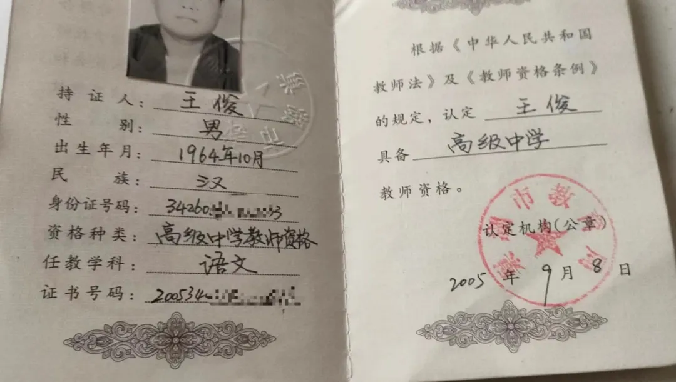 持证人：王俊
性别：男
出生年月：1964年10月
民族：汉
身份证号码：34260 3
资格种类：高级中学教师资格
任教学科：语文
证书号码：200534
根据《中华人民共和国
教师法》及《教师资格条例》
的规定，认定 王俊
具备 高级中学
教师资格。
市教
认定机构(公章)
2005年9月8日